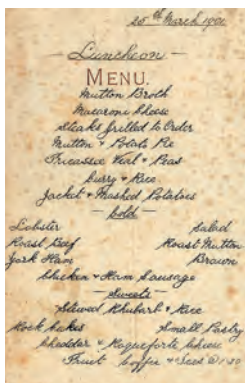 25th March 1901
Luncheon
MENU.
Mutton Broth
Macaroni Cheese
Steaks Grilled to Order
Mutton & Potato Pie
Fricassee Veal & Peas
Curry & Rice
Jacket & Mashed Potatoes
Cold
Lobster Salad
Roast Beef Roast Mutton
York Ham Brawn
Chicken & Ham Sausage
Sweets
Stewed Rhubarb & Rice
Rock Cakes Small Pastry
Cheddar & Roqueforte Cheese
Fruit Coffee &